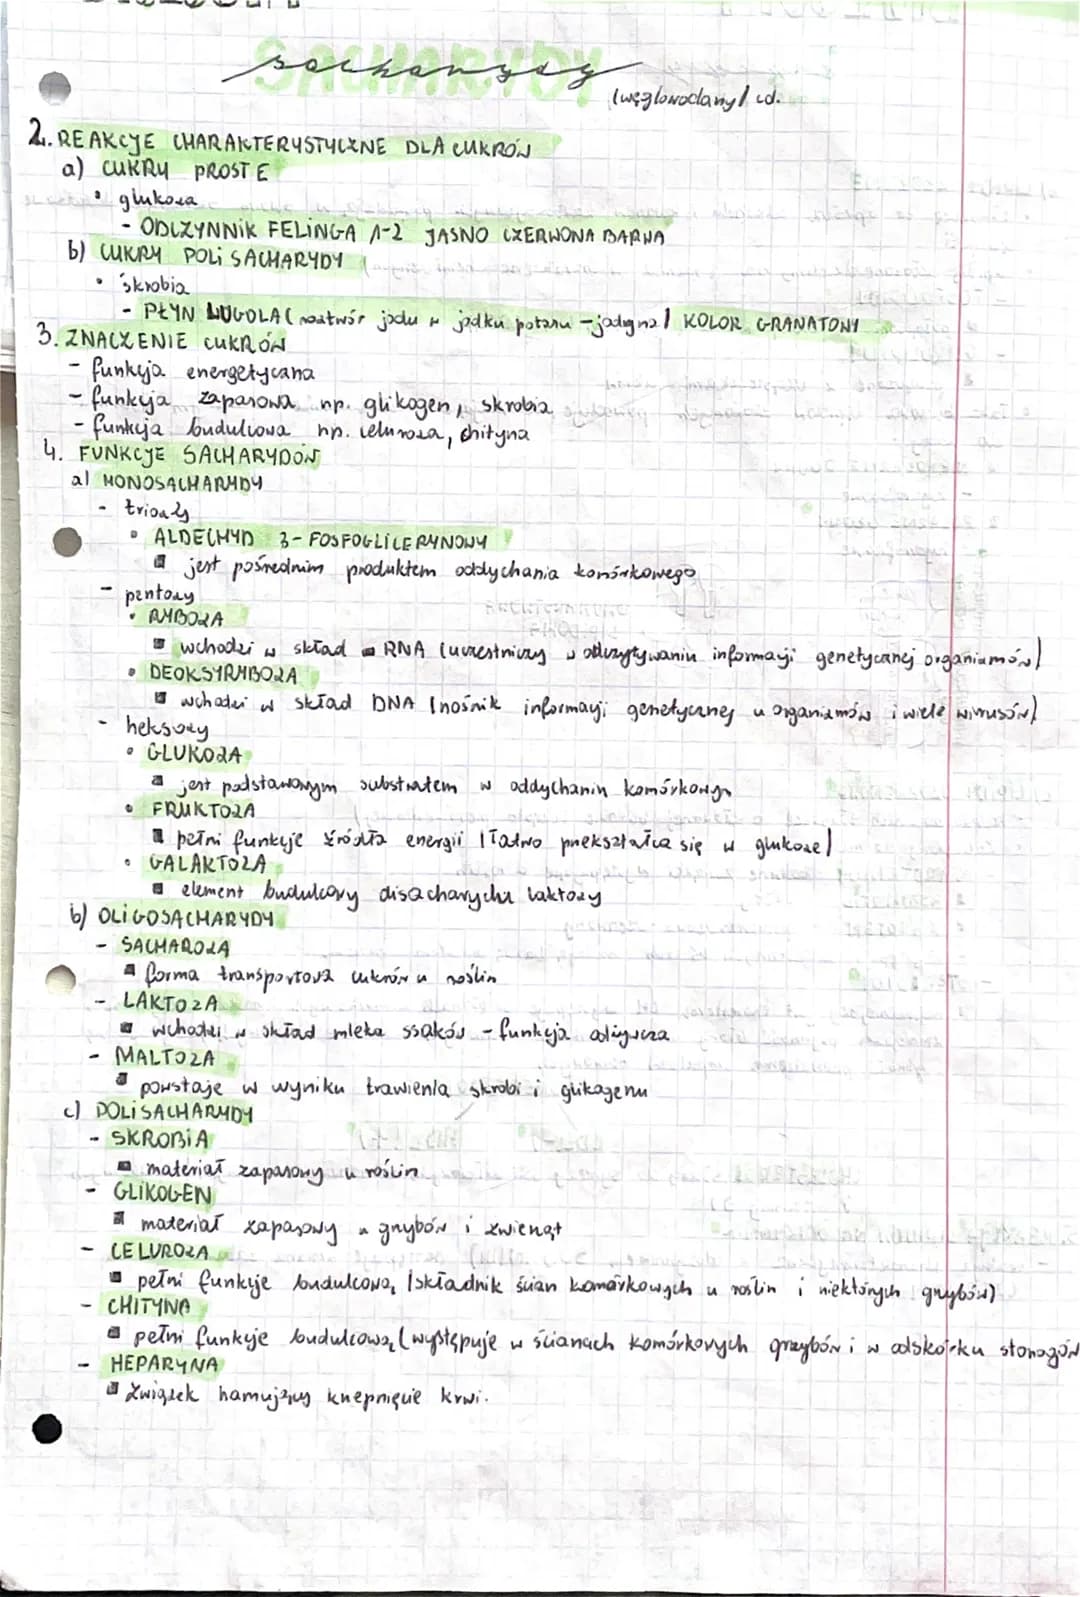 SACHARYDY
sacharydy
(węglowodany) cd.
2. REAKCJE CHARAKTERYSTYCZNE DLA CUKRÓW
a) CUKRY PROSTE
• glukoza
- ODCZYNNIK FELINGA 1-2 JASNO CZERWONA BARWA
b) CUKRY POLISACHARYDY
• skrobia
- PŁYN LUGOLA (roztwór jodu w jodku potasu - jodyna) KOLOR GRANATOWY
3. ZNACZENIE CUKRÓW
- funkcja energetyczna
- funkcja zapasowa np. glikogen, skrobia
- funkcja budulcowa np. celuroza, chityna
4. FUNKCJE SACHARYDÓW
a) MONOSACHARYDY
- triozy
• ALDECHYD 3-FOSFOGLICERYNOWY
▪ jest pośrednim produktem oddychania komórkowego
- pentozy
• RYBOZA
▪ wchodzi w skład RNA (uczestniczy w odczytywaniu informacji genetycznej organizmów)
• DEOKSYRYBOZA
▪ wchodzi w skład DNA (nośnik informacji genetycznej u organizmów i wiele wirusów)
- heksozy
• GLUKOZA
▪ jest podstawowym substratem w oddychaniu komórkowym
• FRUKTOZA
▪ pełni funkcje źródła energii (łatwo przekształca się w glukozę)
• GALAKTOZA
▪ element budulcowy disacharydu laktozy
b) OLIGOSACHARYDY
- SACHAROZA
▪ forma transportowa cukrów u roślin
- LAKTOZA
▪ wchodzi w skład mleka ssaków - funkcja odżywcza
- MALTOZA
▪ powstaje w wyniku trawienia skrobi i glikogenu
c) POLISACHARYDY
- SKROBIA
▪ materiał zapasowy u roślin
- GLIKOGEN
▪ materiał zapasowy u grzybów i zwierząt
- CELUROZA
▪ pełni funkcje budulcową (składnik ścian komórkowych u roślin i niektórych grzybów)
- CHITYNA
▪ pełni funkcje budulcową (występuje w ścianach komórkowych grzybów i w oskórku stonogów
- HEPARYNA
▪ związek hamujący krzepnięcie krwi.